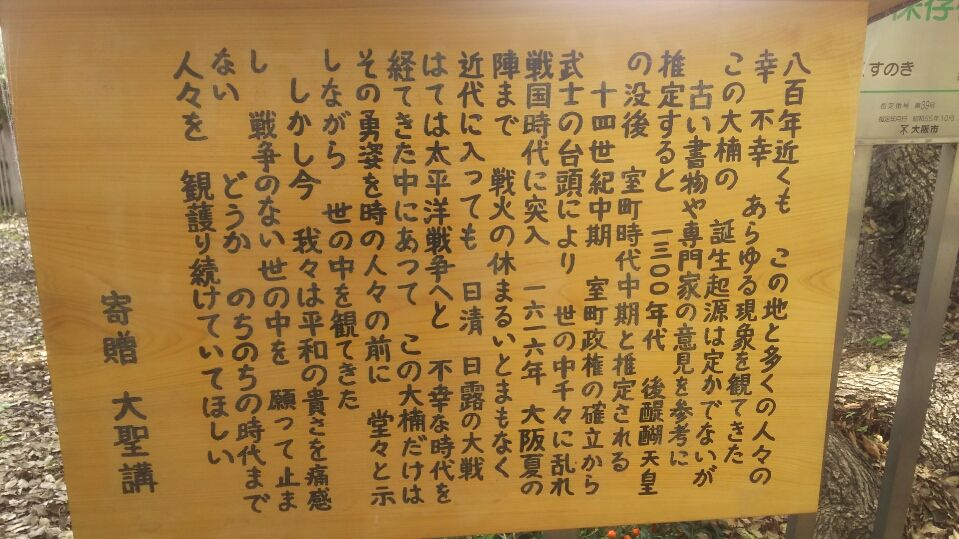 八百年近くも　この地と多くの人々の
幸　不幸　あらゆる現象を観てきた
この大楠の　誕生起源は定かでないが
古い書物や専門家の意見を参考に
推定すると　一三〇〇年代　後醍醐天皇
の没後　室町時代中期と推定される
十四世紀中期　室町政権の確立から
武士の台頭により　世の中千々に乱れ
戦国時代に突入　一六一六年　大阪夏の
陣まで　戦火の休まるいとまもなく
近代に入っても　日清　日露の大戦
はては太平洋戦争へと　不幸な時代を
経てきた中にあって　この大楠だけは
その勇姿を時の人々の前に　堂々と示
しながら　世の中を観てきた
しかし今　我々は平和の貴さを痛感
し　戦争のない世の中を　願って止ま
ない　どうか　のちのちの時代まで
人々を　観護り続けていてほしい
寄贈　大聖講
保存
すのき
指定番号 第39号
指定年月日 昭和55年10月
大阪市